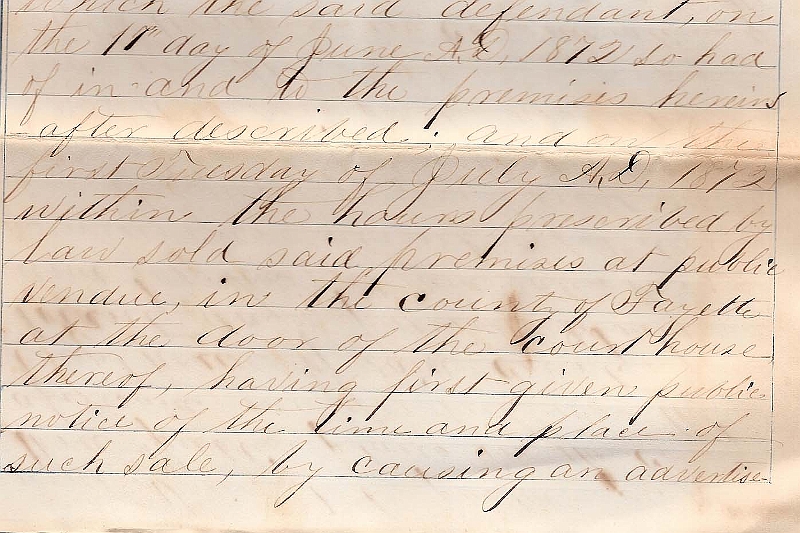 which the said defendant, on
the 1st day of June A.D. 1872 so had
of in and to the premises herein
after described; and on the
first Tuesday of July A.D. 1873
within the hours prescribed by
law sold said premises at public
vendue, in the county of Fayette
at the door of the court house
thereof, having first given public
notice of the time and place of
such sale, by causing an advertise-